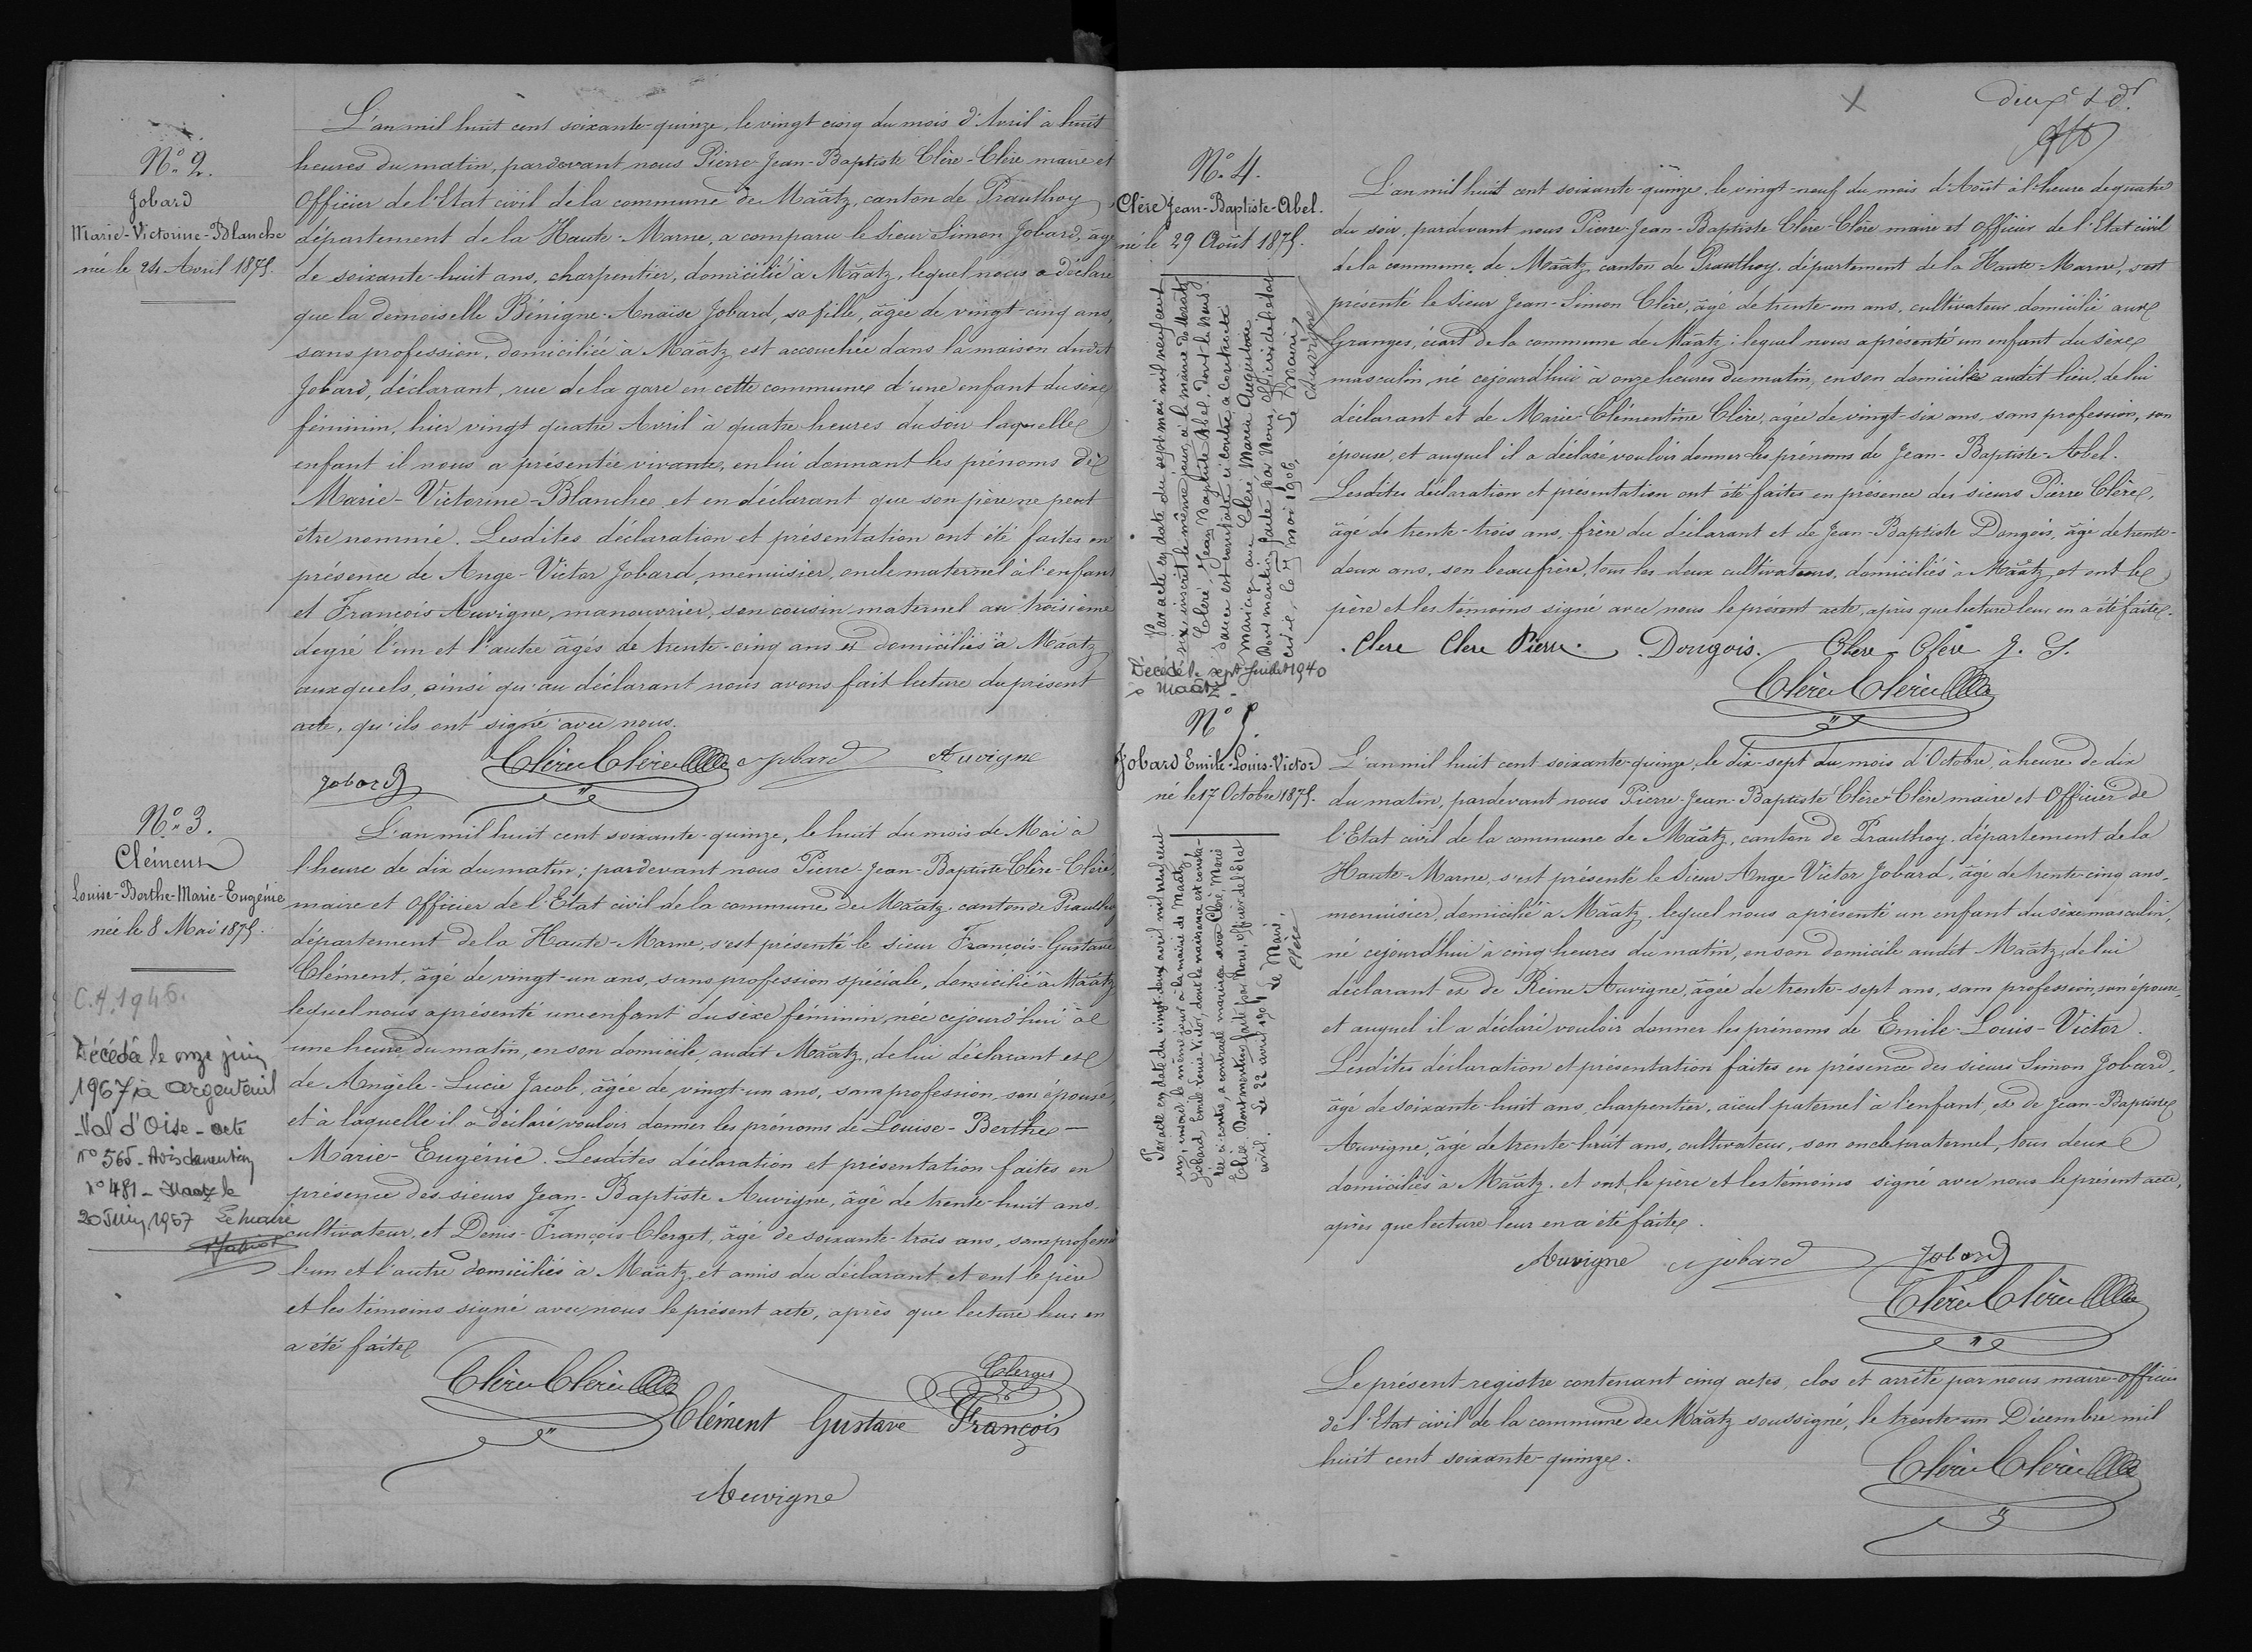 N° 2.
Jobard
Marie-Victorine-Blanche
née le 24 Avril 1875.
L'an mil huit cent soixante-quinze, le vingt cinq du mois d'Avril à huit
heures du matin, pardevant nous Pierre-Jean-Baptiste Clère-Clère maire et
Officier de l'Etat civil de la commune de Maâtz, canton de Prauthoy
département de la Haute-Marne, a comparu le sieur Simon Jobard, âgé
de soixante-huit ans, charpentier, domicilié à Maâtz, lequel nous a déclaré
que la demoiselle Bénigne-Anaïse Jobard, sa fille, âgée de vingt-cinq ans,
sans profession, domiciliée à Maâtz est accouchée dans la maison dudit
Jobard, déclarant, rue de la gare en cette commune d'une enfant du sèxe
féminin, hier vingt quatre Avril à quatre heures du soir laquelle
enfant il nous a présentée vivante, en lui donnant les prénoms de
Marie-Victorine-Blanche et en déclarant que son père ne peut
être nommé. Lesdites déclaration et présentation ont été faites en
présence de Ange-Victor Jobard, menuisier, oncle maternel à l'enfant
et François Auvigne, manouvrier, son cousin maternel au troisième
degré l'un et l'autre âgés de trente-cinq ans et domiciliés à Maâtz
auxquels, ainsi qu'au déclarant nous avons fait lecture du présent
acte, qu'ils ont signé avec nous.
Jobard Clère Clère Jobard Auvigne
N° 3.
Clément
Louise-Berthe-Marie-Eugénie
née le 8 Mai 1875.
C.A. 1946.
Décédée le onze juin
1967 à Argenteuil
Val d'Oise - acte
n° 565 - Avis de mention
n° 481 - Maatz le
20 Juin 1967 Le Maire
L'an mil huit cent soixante-quinze, le huit du mois de Mai à
l'heure de dix du matin; pardevant nous Pierre-Jean-Baptiste Clère-Clère,
maire et Officier de l'Etat civil de la commune de Maâtz canton de Prauthoy
département de la Haute-Marne, s'est présenté le sieur François-Gustave
Clément, âgé de vingt-un ans, sans profession spéciale, domicilié à Maâtz
lequel nous a présenté une enfant du sexe féminin, née cejourd'hui à
une heure du matin, en son domicile, audit Maâtz, de lui déclarant et
de Angèle-Lucie Jacob, âgée de vingt-un ans, sans profession son épouse,
et à laquelle il a déclaré vouloir donner les prénoms de Louise-Berthe-
Marie-Eugénie. Lesdites déclaration et présentation faites en
présence des sieurs Jean-Baptiste Auvigne, âgé de trente-huit ans,
cultivateur, et Denis-François Clerget, âgé de soixante-trois ans, sans profession
l'un et l'autre domiciliés à Maâtz et amis du déclarant et ont le père
et les témoins signé avec nous le présent acte, après que lecture leur en
a été faite
Clère Clère Clerget
Clément Gustave François
Auvigne
N° 4.
Clère Jean-Baptiste-Abel.
né le 29 Août 1875.
Par acte en date du sept mai mil neuf cent
six, inscrit le même jour, à la mairie de Maâtz
Cleré, Jean Baptiste Abel, dont la nais-
sance est constatée ci-contre, a contracté
mariage avec Cleré, Marie Augustine
Dont mention faite par Nous, officier de l'état
civil, le 7 mai 1906. Le Maire,
Auvigne
Décédé le sept Juillet 1940
à Maâtz
L'an mil huit cent soixante-quinze, le vingt-neuf du mois d'Août à l'heure de quatre
du soir, pardevant nous Pierre-Jean-Baptiste Clère-Clère maire et Officier de l'Etat civil
de la commune de Maâtz, canton de Prauthoy, département de la Haute-Marne, s'est
présenté le sieur Jean-Simon Clère, âgé de trente-un ans, cultivateur domicilié aux
Granges, écart de la commune de Maâtz; lequel nous a présenté un enfant du sèxe
masculin né cejourd'hui à onze heures du matin, en son domicile audit lieu, de lui
déclarant et de Marie-Clémentine Clère, agée de vingt-six ans, sans profession, son
épouse, et auquel il a déclaré vouloir donner les prénoms de Jean-Baptiste-Abel.
Lesdites déclaration et présentation ont été faites en présence des sieurs Pierre Clère,
âgé de trente-trois ans, frère du déclarant et de Jean-Baptiste Dongois, âgé de trente-
deux ans, son beau frère, tous les deux cultivateurs, domiciliés à Maâtz et ont le
père et les témoins signé avec nous le présent acte, après que lecture leur en a été faite.
Clere Clere Pierre. Dongois. Clere-Clère J. S.
Clère Clère
N° 5.
Jobard Emile-Louis-Victor
né le 17 Octobre 1875.
Par acte en date du vingt-deux avril mil neuf cent
un, inscrit le même jour à la mairie de Maâtz,
Jobard Emile Louis Victor, dont la naissance est consta-
tée ci-contre, a contracté mariage avec Cleré, Marie
Elise. Dont mention faite par Nous, officier de l'Etat
civil. Le 22 avril 1901 Le Maire,
Clère
L'an mil huit cent soixante-quinze, le dix-sept du mois d'Octobre, à heure de dix
du matin, pardevant nous Pierre-Jean-Baptiste Clère-Clère maire et Officier de
l'Etat civil de la commune de Maâtz, canton de Prauthoy département de la
Haute-Marne, s'est présenté le sieur Ange-Victor Jobard, âgé de trente-cinq ans,
menuisier, domicilié à Maâtz, lequel nous a présenté un enfant du sèxe masculin,
né cejourd'hui à cinq heures du matin, en son domicile audit Maâtz, de lui
déclarant et de Reine Auvigne, âgée de trente-sept ans, sans profession, son épouse,
et auquel il a déclaré vouloir donner les prénoms de Emile-Louis-Victor.
Lesdites déclaration et présentation faites en présence des sieurs Simon Jobard,
âgé de soixante-huit ans, charpentier, aïeul paternel à l'enfant, et de Jean-Baptiste
Auvigne, âgé de trente-huit ans, cultivateur, son oncle paternel, tous deux
domiciliés à Maâtz. et ont, le père et les témoins signé avec nous le présent acte,
après que lecture leur en a été faite.
Auvigne Jobard Jobard
Clère Clère
Le présent registre contenant cinq actes, clos et arrêté par nous maire-officier
de l'Etat civil de la commune de Maâtz soussigné, le trente-un Décembre mil
huit cent soixante-quinze.
Clère Clère